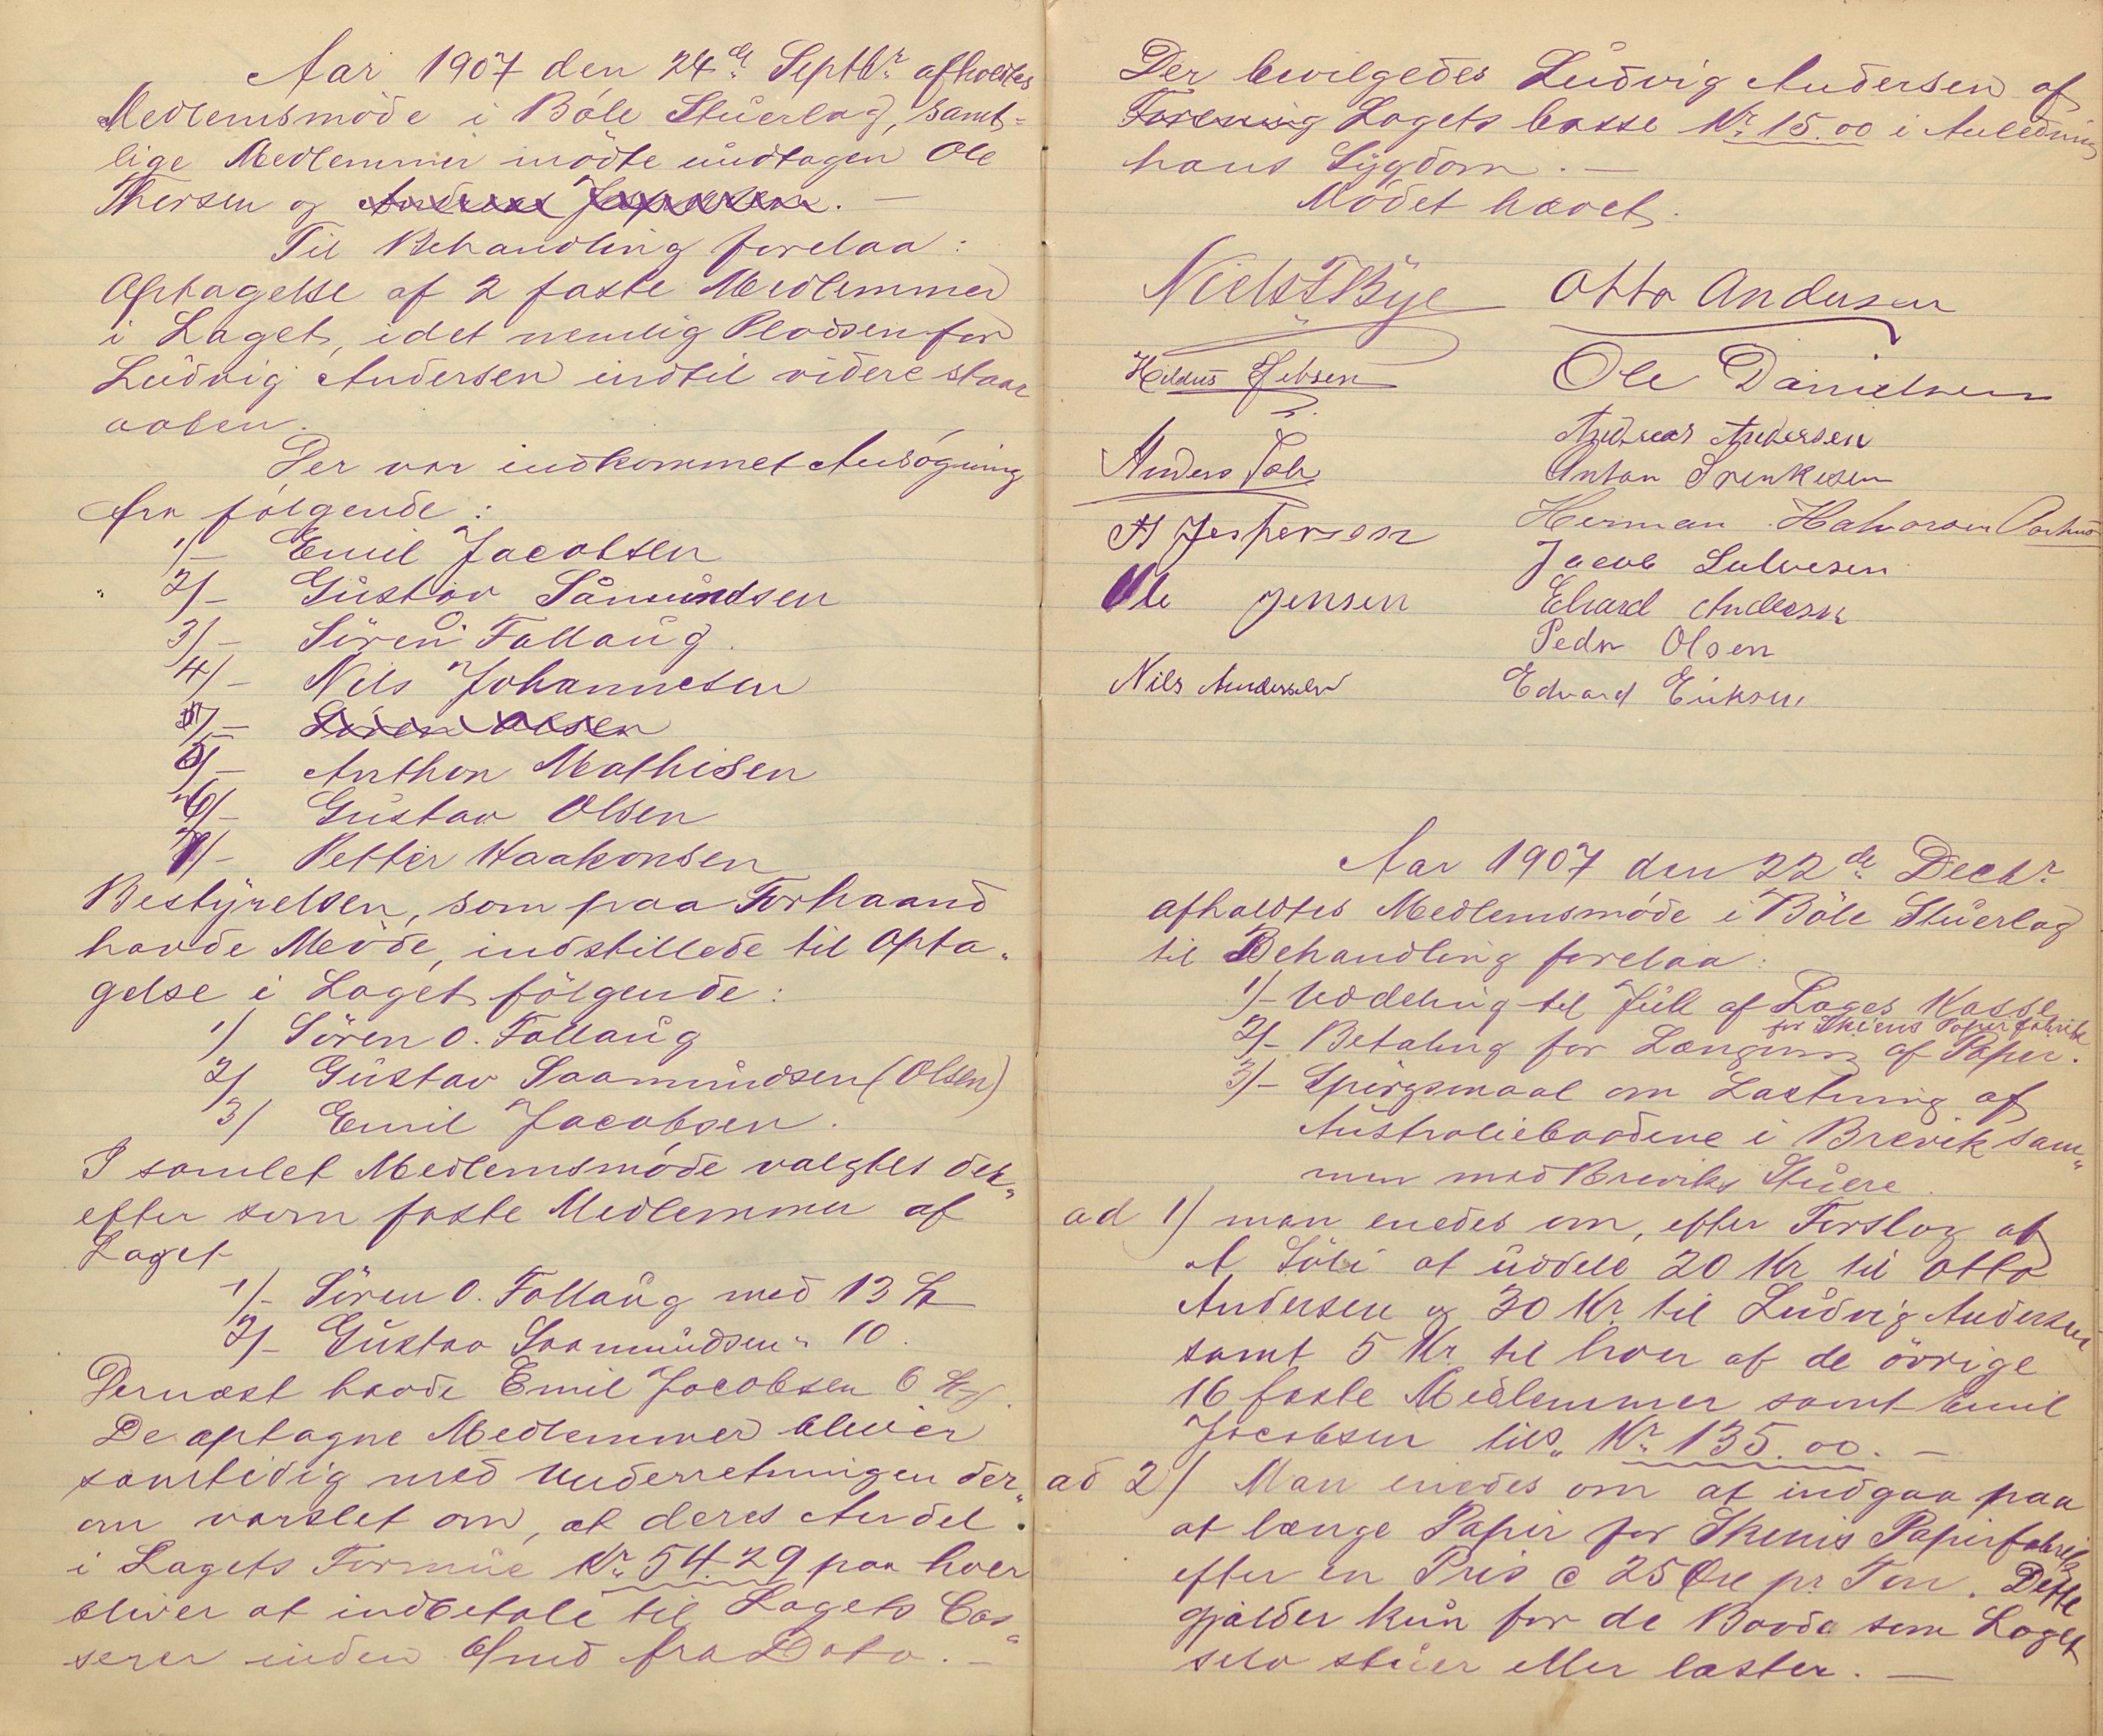 Aar 1907 den 24de Septbr afholdtes
Medlemsmöde i Böle Stuerlag, samt-
lige Medlemmer mödte undtagen Ole
Thersen og Andreas Jespersen. —
Til Behandling forelaa:
Optagelse af 2 faste Medlemmer
i Laget, idet nemlig Pladsen for
Ludvig Andersen indtil videre staar
aaben.
Der var indkommet Ansögning
fra fölgende:
1/- Emil Jacobsen
2/- Gustav Såmundsen
3/- Sören O. Follaug.
4/- Nils Johannesen
5/- Sören Olsen
5/- Anthon Mathisen
6/- Gustav Olsen
7/- Petter Haakonsen
Bestyrelsen, som paa Forhaand
havde Möde, indstillede til Opta-
gelse i Laget fölgende:
1/ Sören O. Follaug
2/ Gustav Saamundsen (Olsen)
3/ Emil Jacobsen.
I samlet Medlemsmöde valgtes der-
efter som faste Medlemmer af
Laget
1/- Sören O. Follaug med 13 St
2/- Gustav Saamundsen " 10.
Dernæst havde Emil Jacobsen 6 St.
De optagne Medlemmer bliver
samtidig med Underretningen der-
om varslet om, at deres Andel
i Lagets Formue Kr. 54.29 paa hver
bliver at indbetale til Lagets Cas-
serer inden 6/md fra Dato. —
Der bevilgedes Ludvig Andersen af
Forening Lagets Casse Kr. 15.00 i Anledning
hans Sygdom. —
Mödet hævet.
Niels T Bye Otto Andersen
Hildus Jebsen Ole Danielsen
Andreas Andersen
Anders Söli Anton Srenkesen
A Jespersen Herman Halvorsen Aarhus
Jacob Lulvesen
Ole Jensen Edvard Andersen
Peder Olsen
Nils Andersen Edvard Eriksen
Aar 1907 den 22de Decbr.
afholdtes Medlemsmöde i Böle Stuerlag
til Behandling forelaa:
1/- Uddeling til Jul af Lages Kasse
for Skiens Papirfabrik
2/- Betaling for Længning af Papir.
3/- Spörgsmaal om Lastning af
Australiebaadene i Brevik sam-
men med Breviks Stuere.
ad 1/ man enedes om, efter Forslag af
A Söli at uddele 20 Kr til Otto
Andersen og 30 Kr. til Ludvig Andersen
samt 5 Kr. til hver af de övrige
16 faste Medlemmer samt Emil
Jacobsen tils. Kr. 135.00. —
ad 2/ Man enedes om at indgaa paa
at længe Papir for Skiens Papirfabrik
efter en Pris a 25 Öre pr. Ton. Dette
gjælder kun for de Baade som Laget
selv stuer eller laster. —